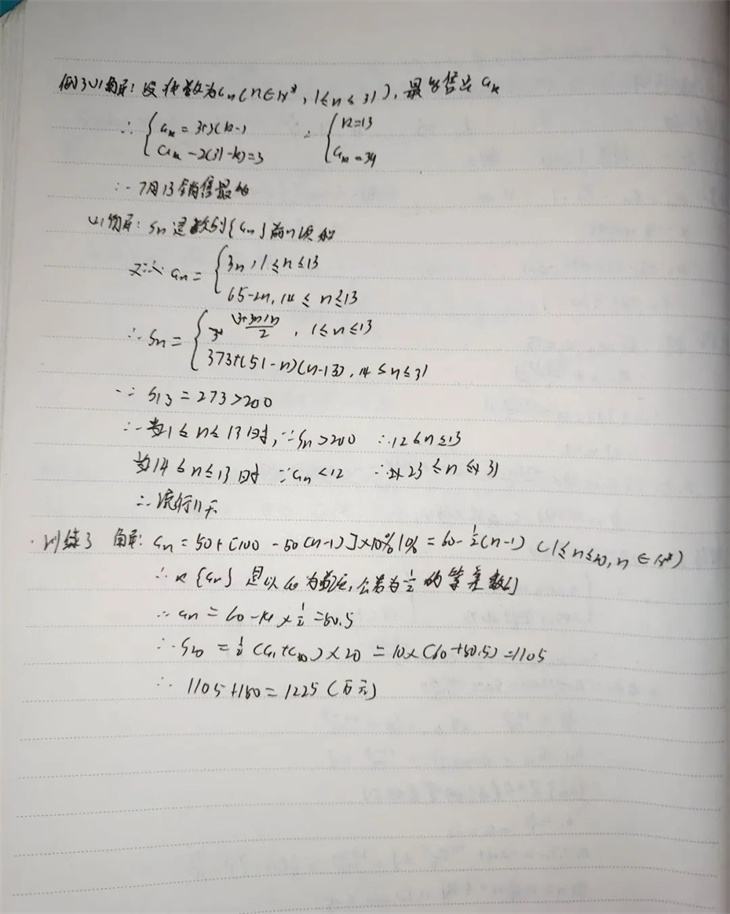 例3 (1) 解: 设件数为an(n∈N*, 1≤n≤31), 最多售出ak
∴ { ak = 3+3(k-1) ∴ { k=13
ak - 2(31-k)=3 ak=39
∴ 7月13销售最多
(2) 解: Sn是数列{an}前n项和
又∵ an = { 3n, 1≤n≤13
65-2n, 14≤n≤13
∴ Sn = { (3+3n)n/2, 1≤n≤13
373+(51-n)(n-13), 14≤n≤31
∵ S13=273>200
∴ 当1≤n≤13时, ∵Sn>200 ∴12≤n≤13
当14≤n≤13时 ∵an<12 ∴ 23≤n≤31
∴ 流行11天
训练3 解: an = 50+[100-50(n-1)]×10%1% = 60-1/2(n-1) (1≤n≤20, n∈N*)
∴ {an} 是以60为首项, 公差为1/2的等差数列
∴ an = 60-19×1/2=50.5
∴ S20 = 1/2(a1+a20)×20 = 10×(60+50.5)=1105
∴ 1105+150=1225(万元)